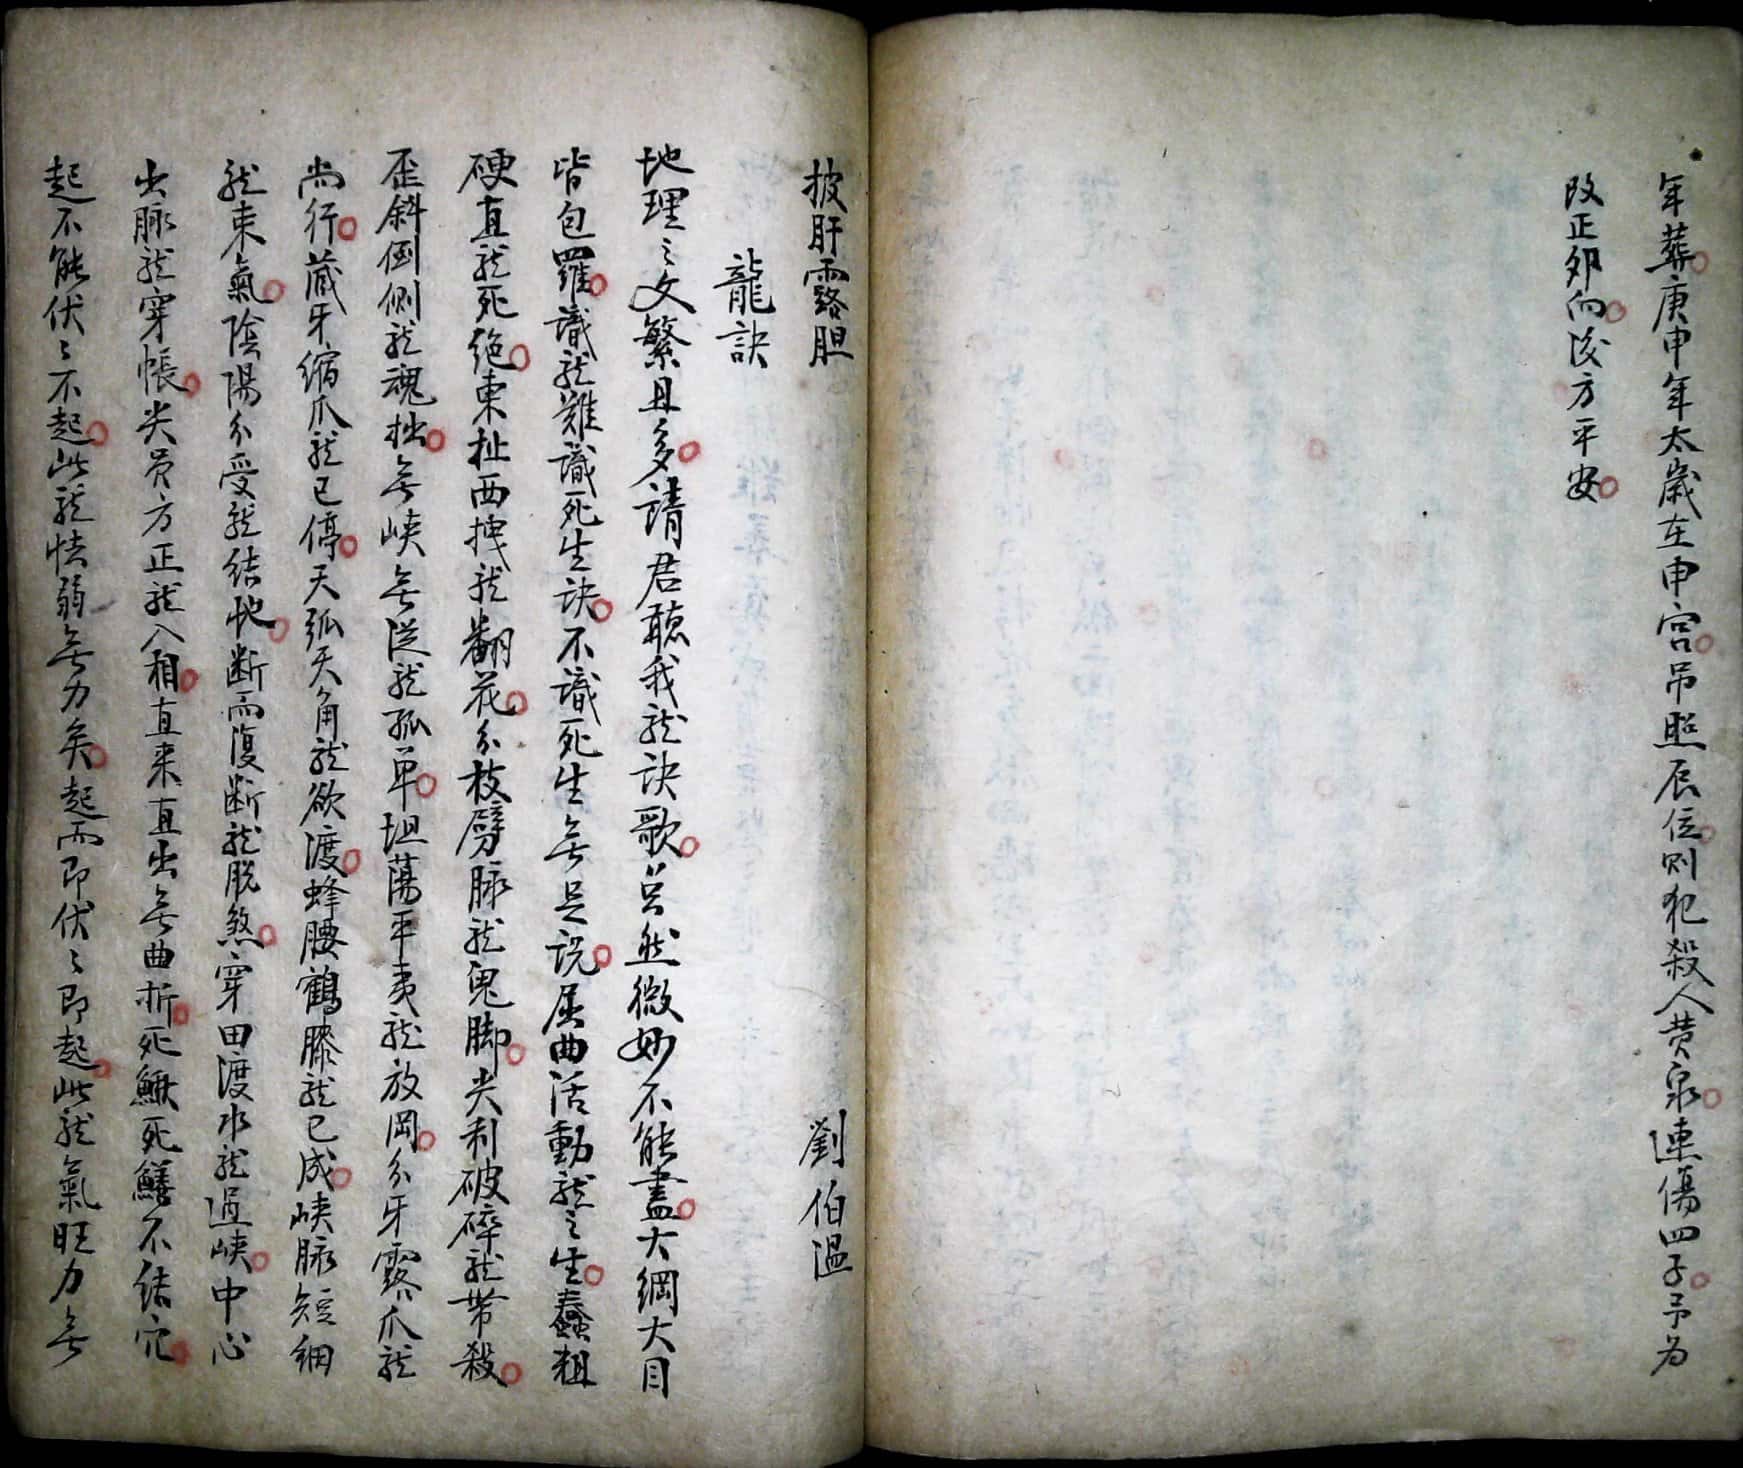 年葬庚申年太歲在申宮吊照辰位則犯殺人黄泉連傷四子予为
改正卯向後方平安
披肝露胆　劉伯温
龍訣
地理之文繁且多請君聽我龍訣歌𠔃然微妙不能盡大綱大目
皆包羅識龍難識死生訣不識死生無足說屈曲活動龍之生蠢粗
硬直龍死絶東扯西拽龍翻花分枝劈脉龍鬼脚尖利破碎龍帶殺
歪斜倒側龍魂拙無峽無從龍孤单坦蕩平夷龍放岡分牙露爪龍
尚行蔵牙縮爪龍已停天弧天角龍欲渡蜂腰鶴膝龍已成峽脉短細
龍束氣陰陽分受龍結地断而復断龍脱煞穿田渡水龍過峽中心
出脉龍穿帳尖员方正龍入相直来直出無曲折死鰍死鱔不結穴
起不能伏〻不起此龍怯弱無力矣起而即伏〻即起此龍氣旺力無